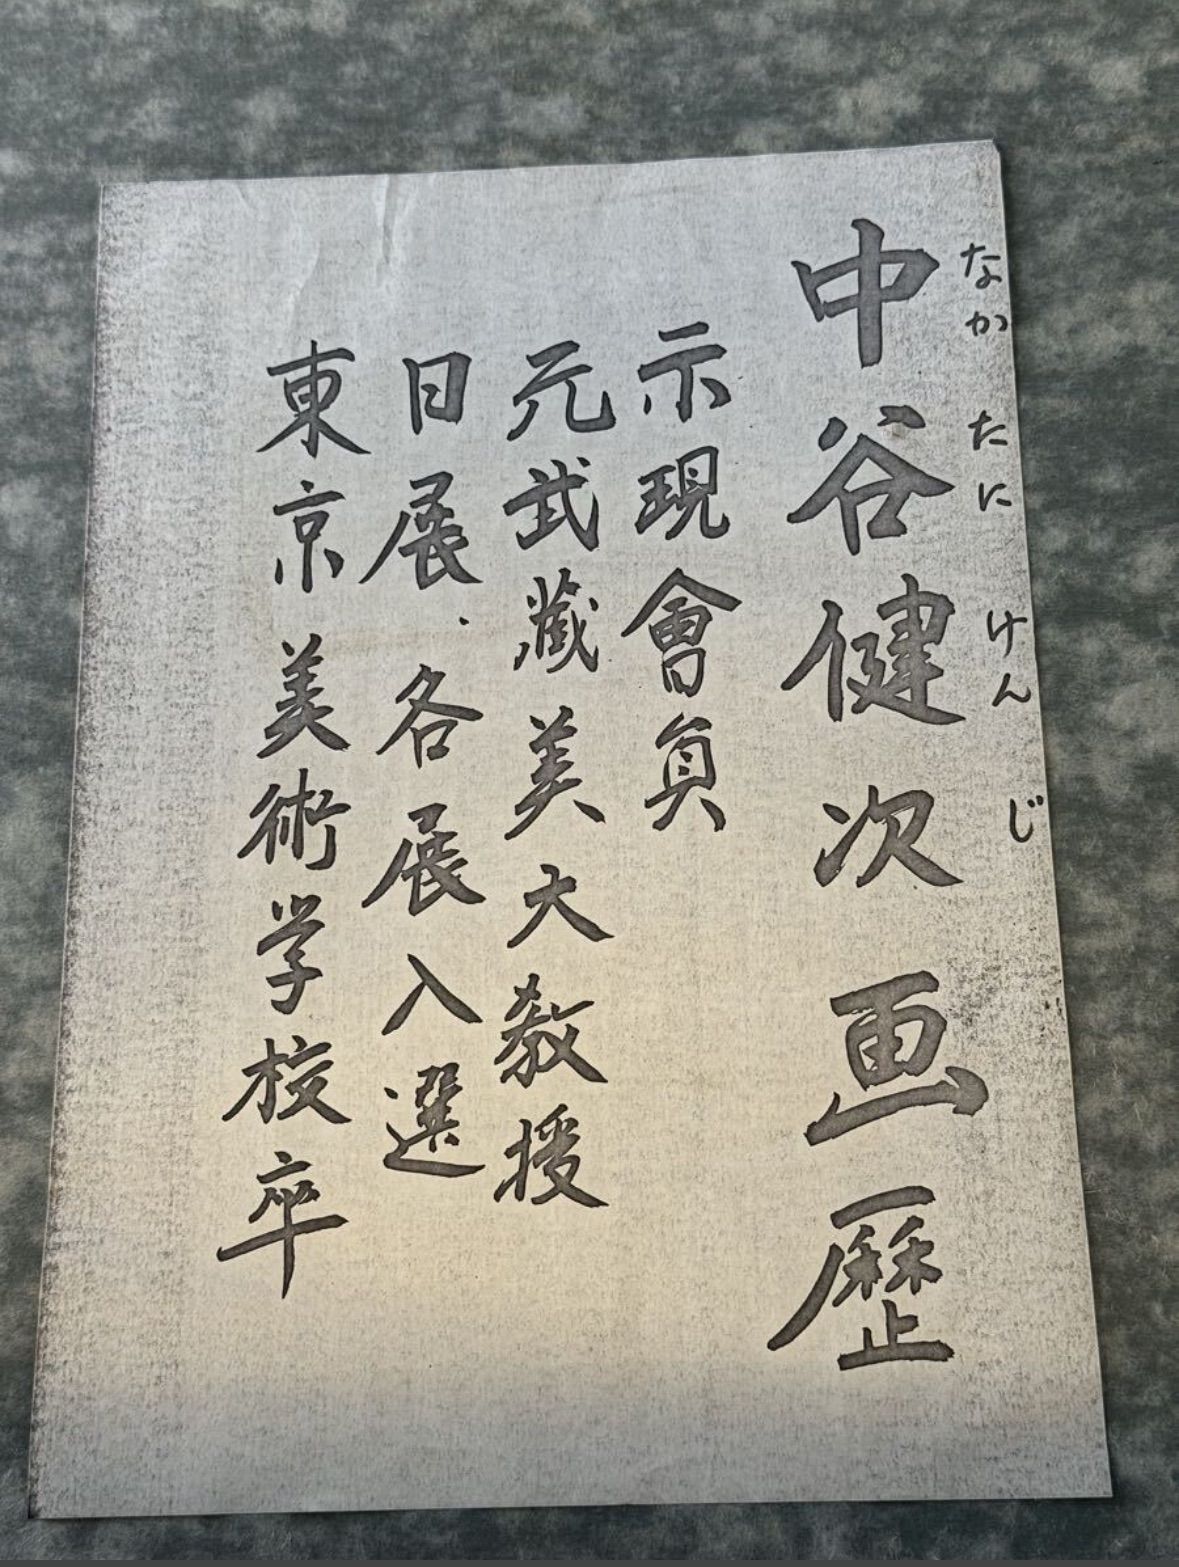 中谷健次画歴
なかたにけんじ
示現會員
元武蔵美大教授
日展.各展入選
東京美術学校卒